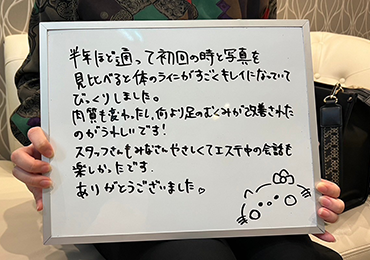 半年ほど通って初回の時と写真を
見比べると体のラインがすごくキレイになっていて
びっくりしました。
肉質も変わったし、何より足のむくみが改善された
のがうれしいです!
スタッフさんもみなさんやさしくてエステ中の会話も
楽しかったです.
ありがとうございました♡